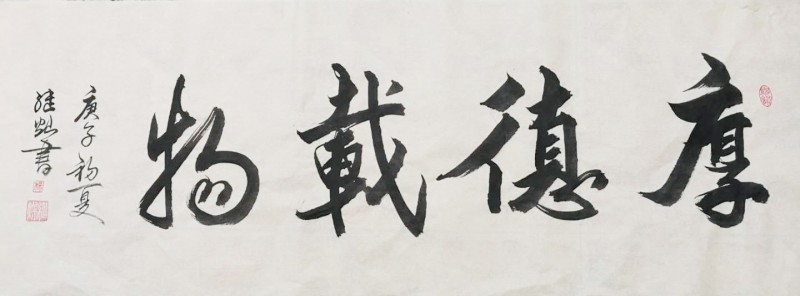 厚德載物
庚子初夏